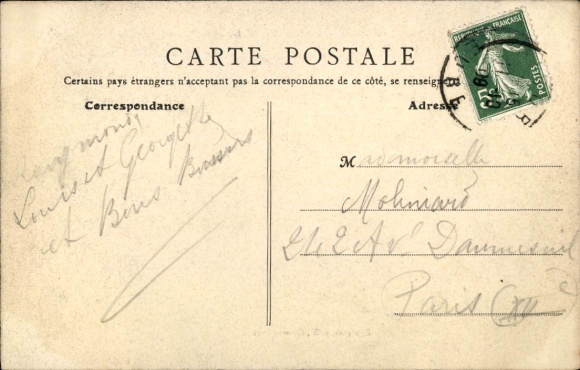 CARTE POSTALE
Certains pays étrangers n'acceptant pas la correspondance de ce côté, se renseigne
Correspondance
Adresse
REPUBLIQUE FRANÇAISE
POSTES
Raymond,
Louis et Georgette
et Bons Baisers
Mademoiselle
Moliniard
242 Av. Daumesnil
Paris (XII è